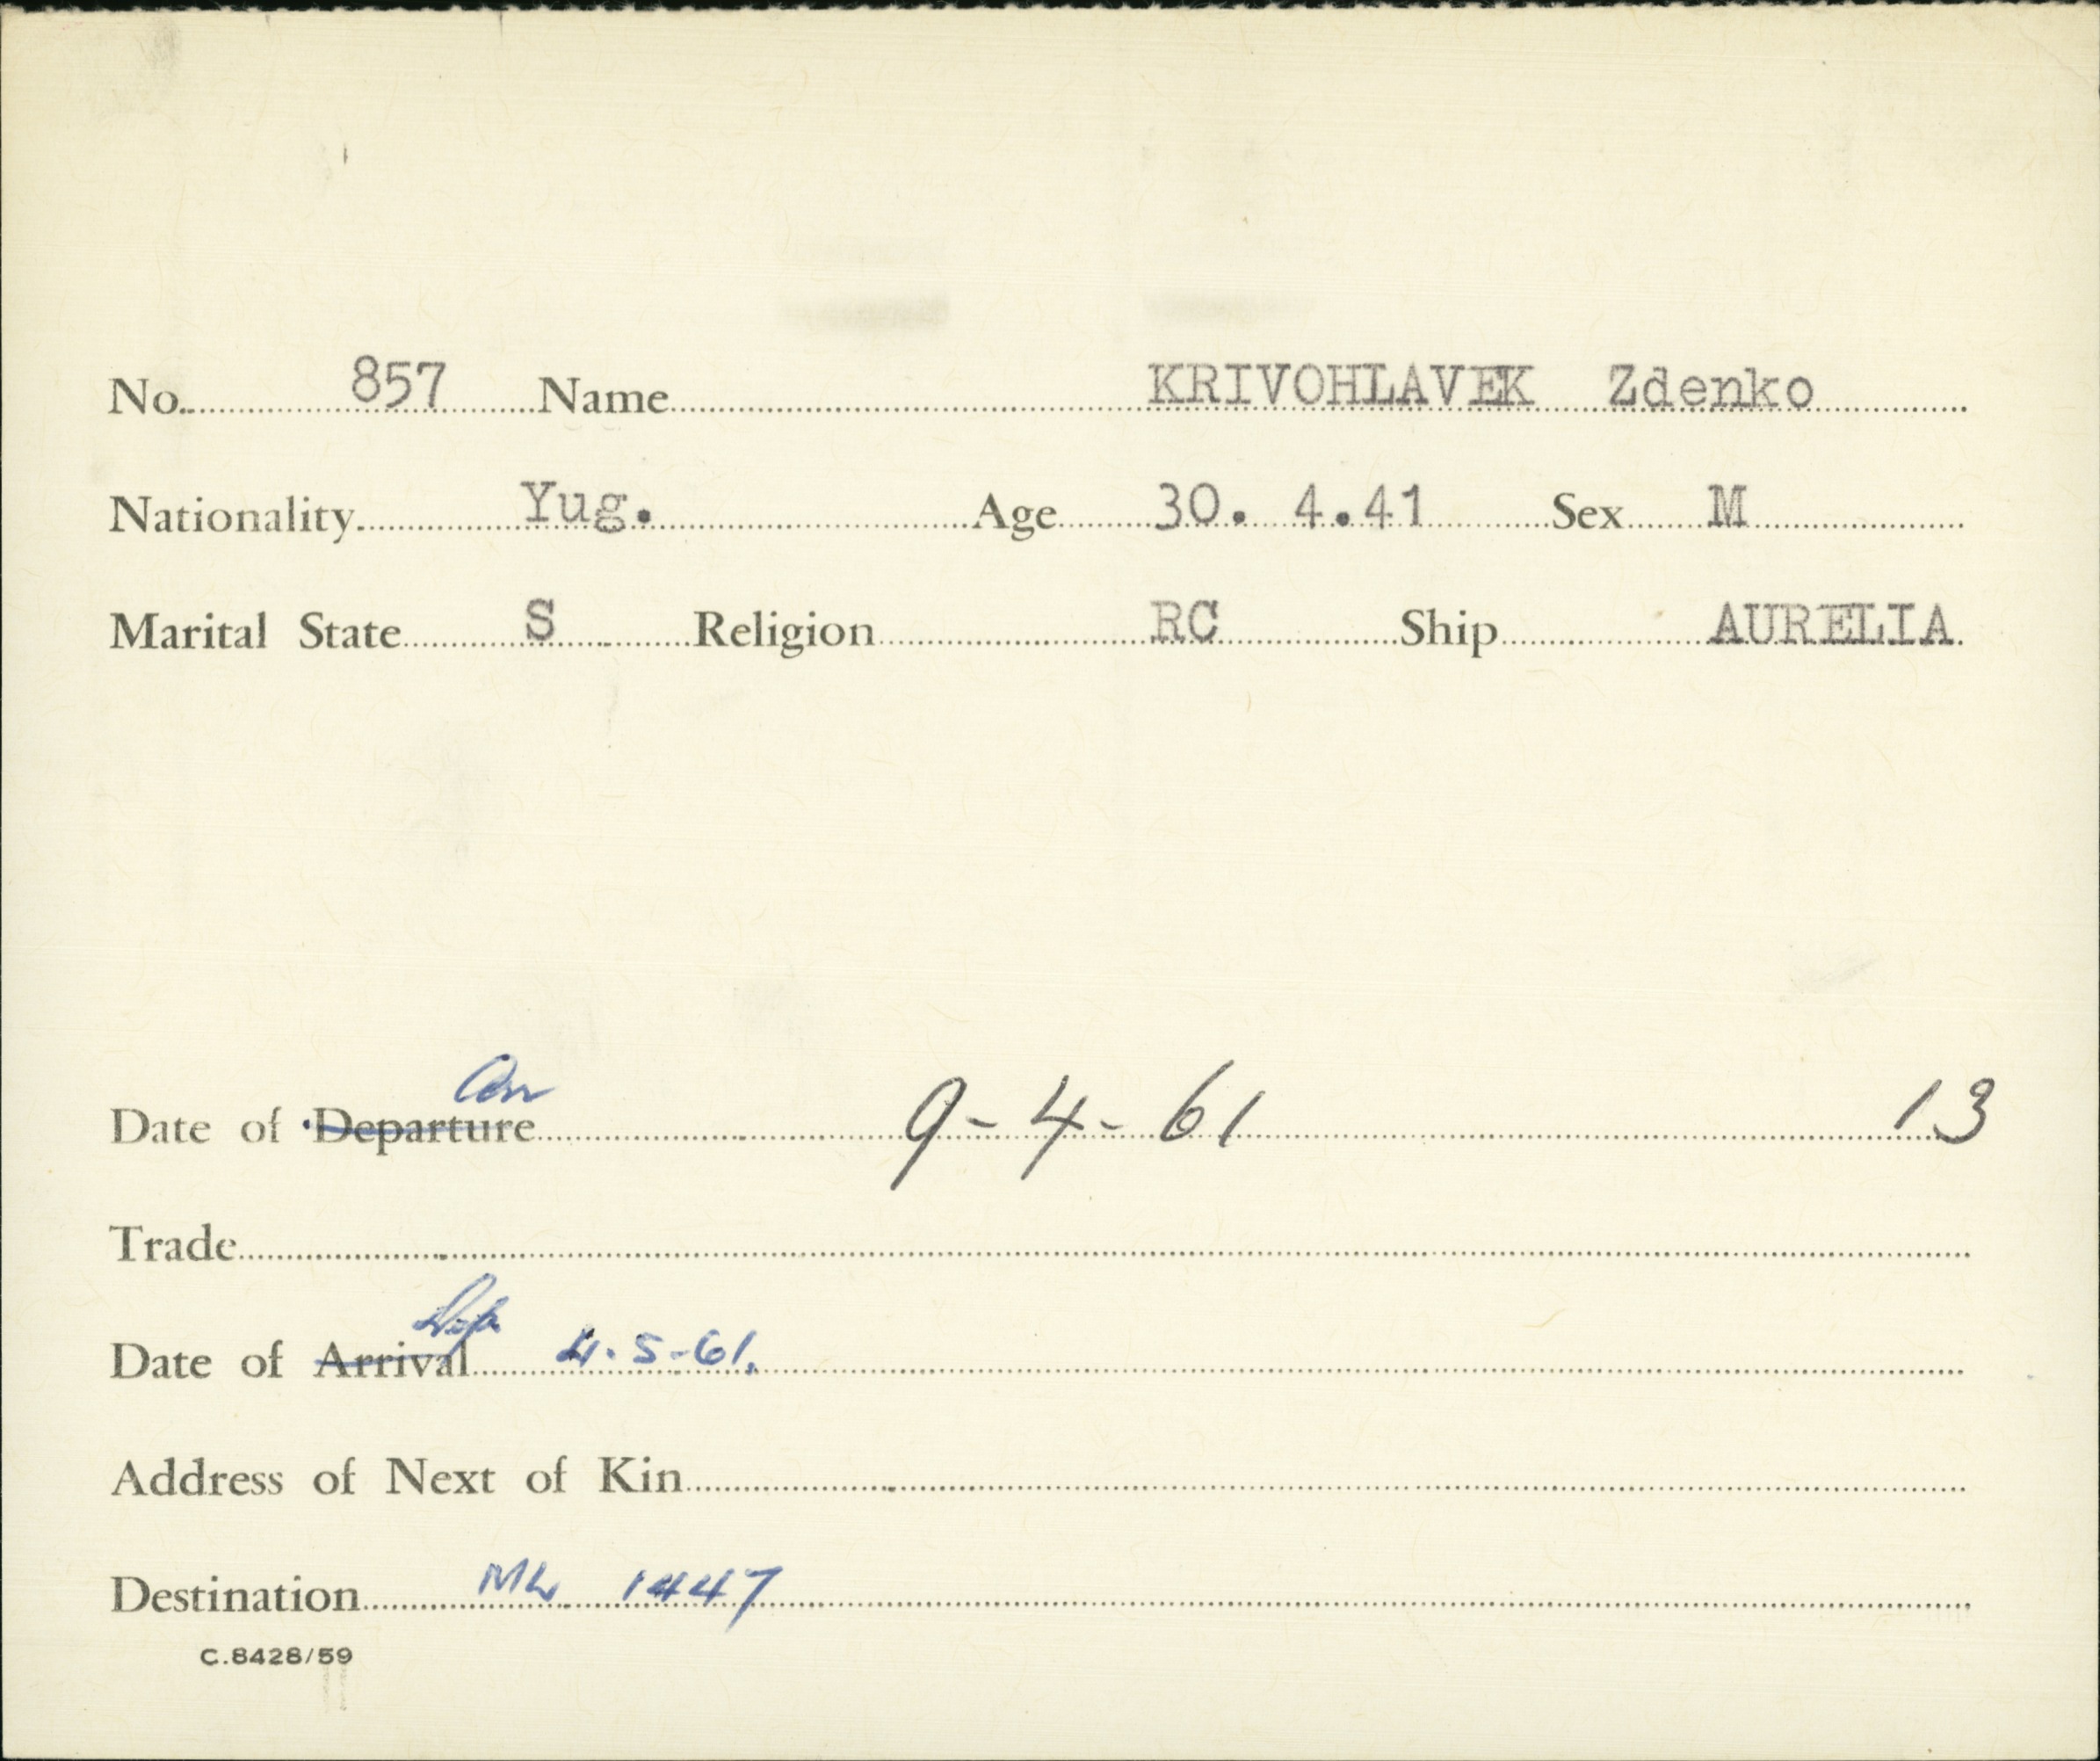 No. 857 Name KRIVOHLAVEK Zdenko
Nationality Yug. Age 30. 4.41 Sex M
Marital State S Religion RC Ship AURELIA
Arr
Date of Departure 9-4-61 13
Trade
Dep
Date of Arrival 4.5-61.
Address of Next of Kin
Destination ML 1447
C.8428/59